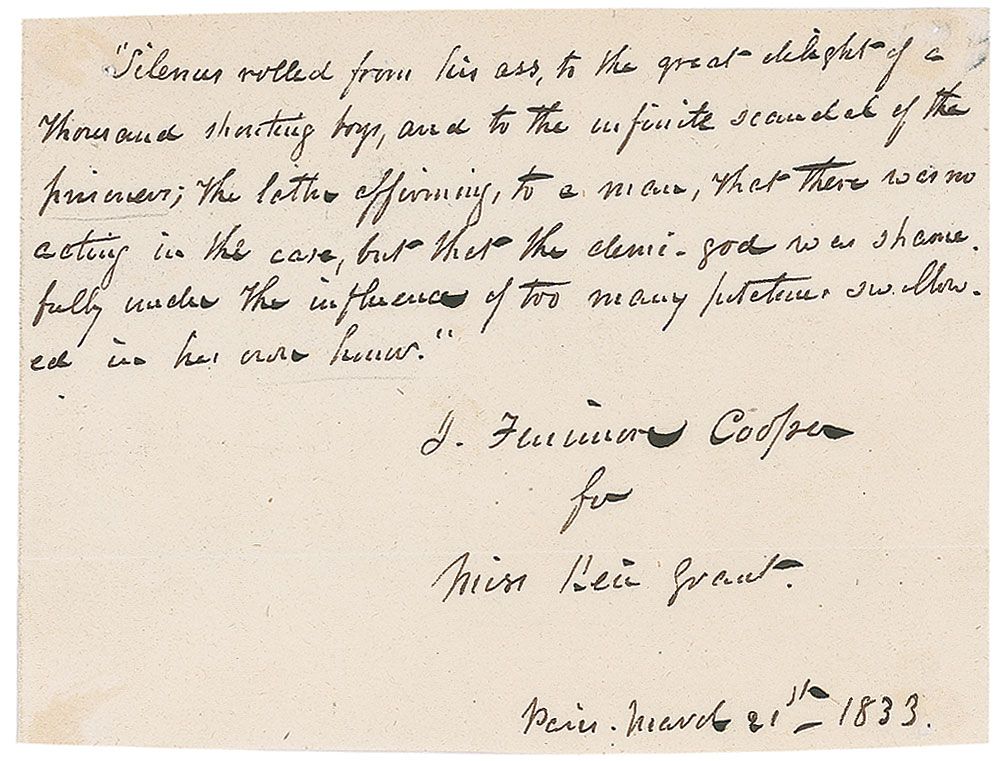 "Silenus rolled from his ass, to the great delight of a
thousand shouting boys, and to the infinite scandal of the
prisoners; the latter affirming, to a man, that there was no
acting in the case, but that the demi-god was shame-
fully under the influence of too many potations swallow-
ed in his own honor."
J. Fenimore Cooper
for
Miss Keir Grant.
Paris. March 21st 1833.